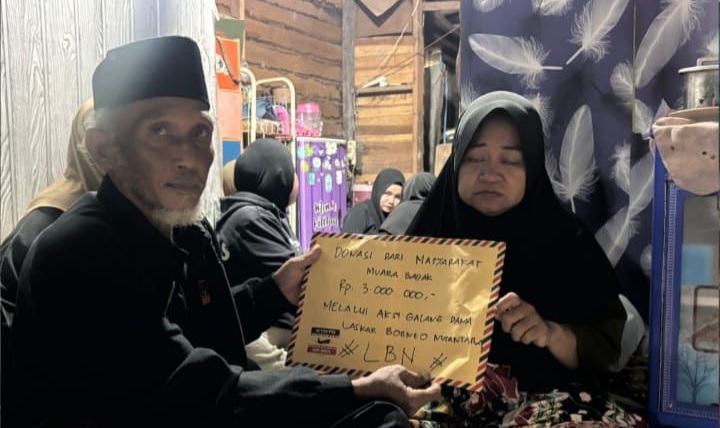 DONASI DARI MASYARAKAT
MUARA BADAK
Rp. 3.000.000,-
MELALUI AKSI GALANG DANA
LASKAR BORNEO NUSANTARA
# LBN #